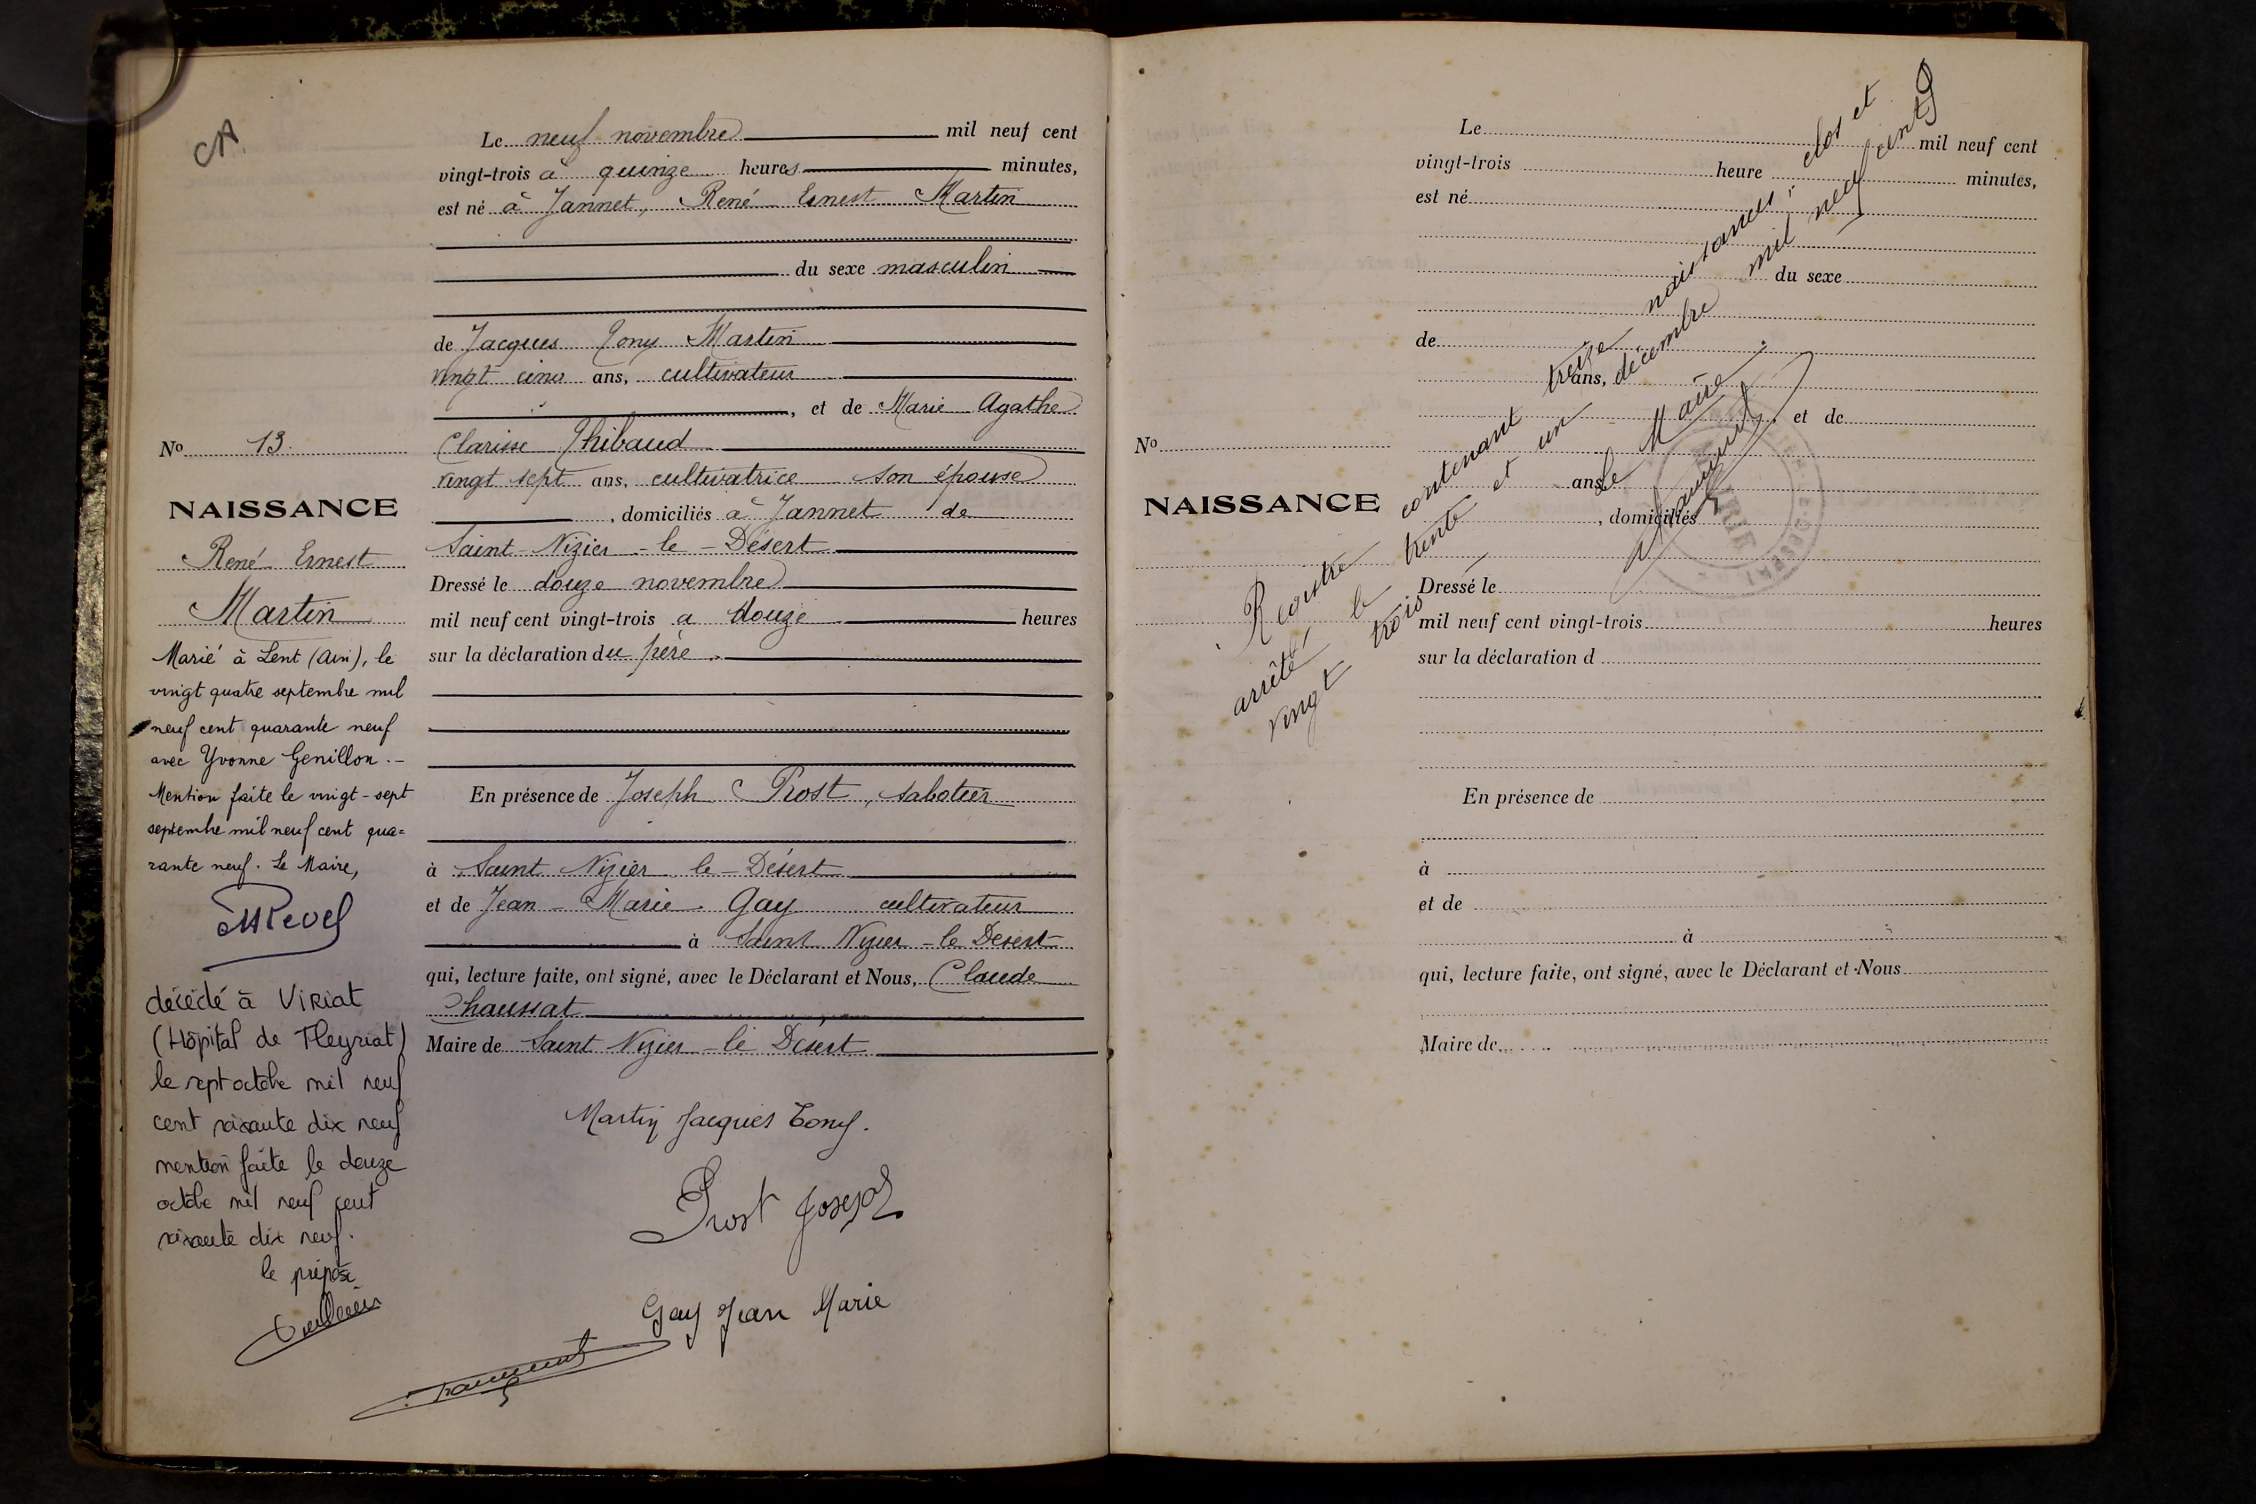 CA
Le neuf novembre mil neuf cent
vingt-trois à quinze heures minutes,
est né à Jannet, René Ernest Martin
du sexe masculin
de Jacques Tony Martin
vingt cinq ans, cultivateur
, et de Marie Agathe
Clarisse Thibaud
vingt sept ans, cultivatrice son épouse
, domiciliés à Jannet de
Saint-Nizier-le-Désert
Dressé le douze novembre
mil neuf cent vingt-trois a douze heures
sur la déclaration du père.
En présence de Joseph Prost, sabotier
à Saint Nizier le-Désert
et de Jean-Marie Gay cultivateur
à Saint Nizier-le Désert
qui, lecture faite, ont signé, avec le Déclarant et Nous, Claude
Chaussat
Maire de Saint Nizier-le Désert
Martin Jacques Tony.
Prost Joseph
Gay Jean Marie
No 13.
NAISSANCE
René Ernest
Martin
Marié à Lent (Ain), le
vingt quatre septembre mil
neuf cent quarante neuf
avec Yvonne Genillon.-
Mention faite le vingt-sept
septembre mil neuf cent qua=
rante neuf. Le Maire,
décédé à Viriat
(Hôpital de Fleyriat)
le sept octobre mil neuf
cent soixante dix neuf
mention faite le douze
octobre mil neuf cent
soixante dix neuf.
le préposé
9
Le mil neuf cent
vingt-trois heure minutes,
est né
du sexe
de
ans,
et de
ans,
, domiciliés
Dressé le
mil neuf cent vingt-trois heures
sur la déclaration d
En présence de
à
et de
à
qui, lecture faite, ont signé, avec le Déclarant et Nous
Maire de
No
NAISSANCE
Registre contenant treize naissances, clos et
arrêté le trente et un décembre mil neuf cent
vingt trois
Le Maire.
MAIRIE